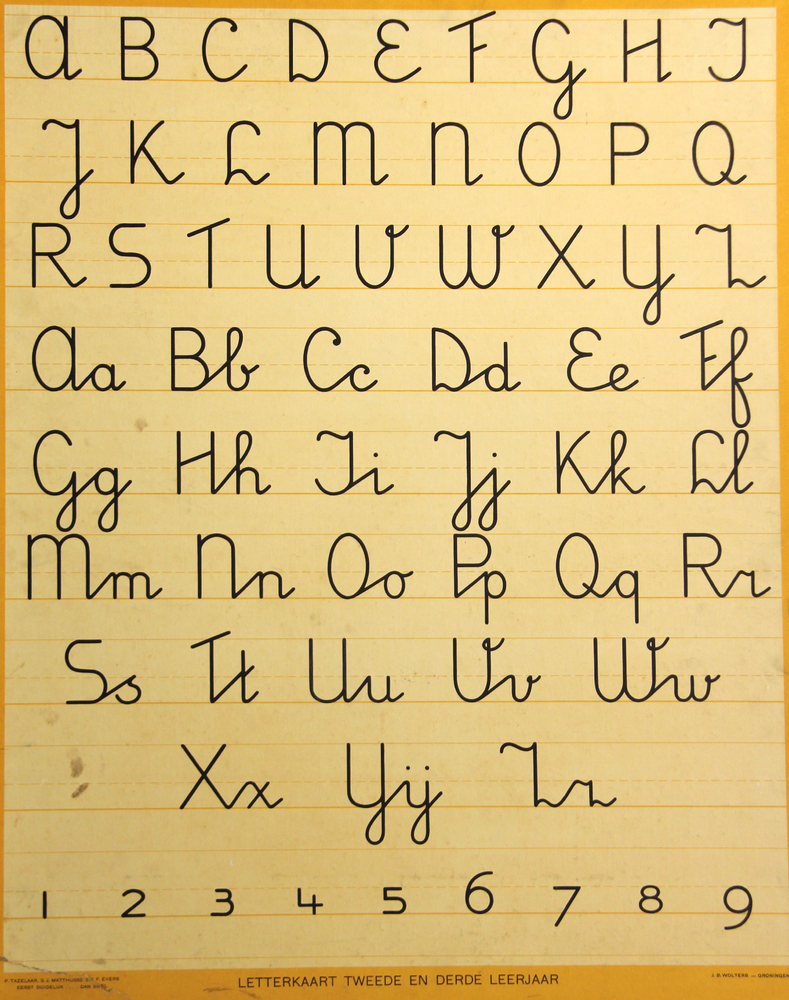 A B C D E F G H I
J K L M N O P Q
R S T U V W X Y Z
Aa Bb Cc Dd Ee Ff
Gg Hh Ii Jj Kk Ll
Mm Nn Oo Pp Qq Rr
Ss Tt Uu Vv Ww
Xx Yij Zz
1 2 3 4 5 6 7 8 9
P. TAZELAAR, S.J. MATTHIJSSE EN F. EVERS
EERST DUIDELIJK DAN
LETTERKAART TWEEDE EN DERDE LEERJAAR
J.B. WOLTERS — GRONINGEN